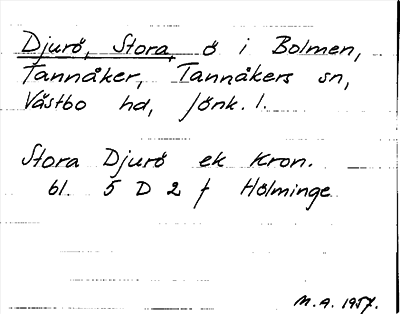 Djurö, Stora, ö i Bolmen,
Tannåker, Tannåkers sn,
Västbo hd, Jönk. l.
Stora Djurö ek kron.
bl. 5 D 2 f Holminge
M.A. 1957.